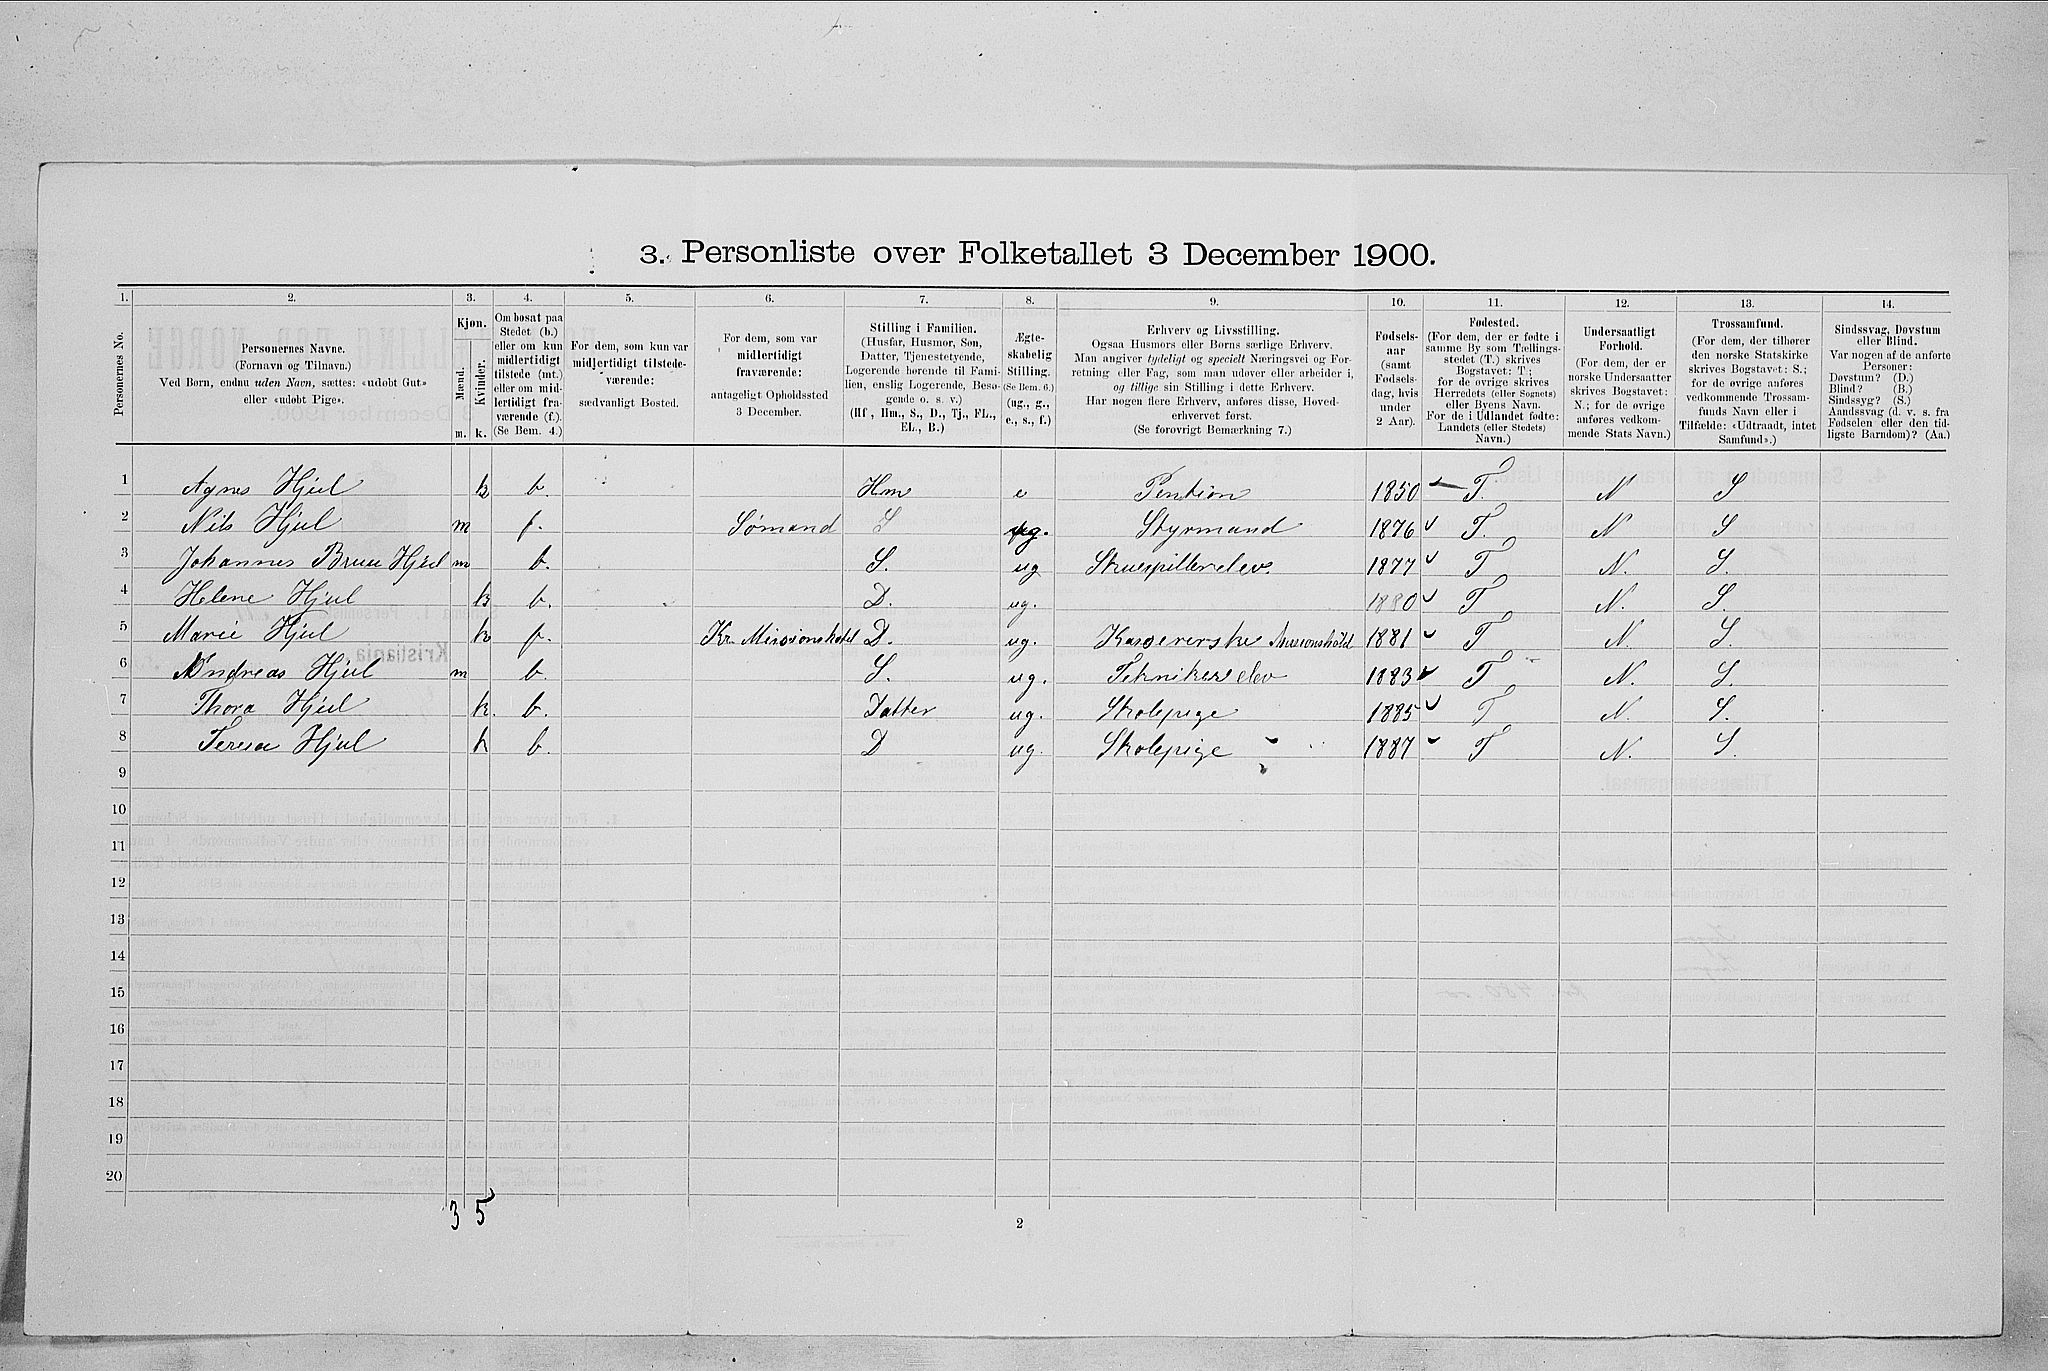 3. Personliste over Folketallet 3 December 1900.
1. 2. 3. 4. 5. 6. 7. 8. 9. 10. 11. 12. 13. 14.
Personernes No.
Personernes Navne.
(Fornavn og Tilnavn.)
Ved Børn, endnu uden Navn, sættes: «udøbt Gut»
eller «udøbt Pige».
Kjøn.
Mænd. Kvinder.
m. k.
Om bosat paa
Stedet (b.)
eller om kun
midlertidigt
tilstede (mt.)
eller om mid-
lertidigt fra-
værende (f.).
(Se Bem. 4.)
For dem, som kun var
midlertidigt tilstede-
værende:
sædvanligt Bosted.
For dem, som var
midlertidigt
fraværende:
antageligt Opholdssted
3 December.
Stilling i Familien.
(Husfar, Husmor, Søn,
Datter, Tjenestetyende,
Logerende hørende til Fami-
lien, enslig Logerende, Besø-
gende o. s. v.)
(Hf., Hm., S., D., Tj., FL.,
EL., B.)
Ægte-
skabelig
Stilling.
(Se Bem. 6.)
(ug., g.,
e., s., f.)
Erhverv og Livsstilling.
Ogsaa Husmors eller Børns særlige Erhverv.
Man angiver tydeligt og specielt Næringsvei og For-
retning eller Fag, som man udøver eller arbeider i,
og tillige sin Stilling i dette Erhverv.
Har nogen flere Erhverv, anføres disse, Hoved-
erhvervet først.
(Se forøvrigt Bemærkning 7.)
Fødsels-
aar
(samt
Fødsels-
dag, hvis
under
2 Aar).
Fødested.
(For dem, der er fødte i
samme By som Tællings-
stedet (T.) skrives
Bogstavet: T.;
for de øvrige skrives
Herredets (eller Sognets)
eller Byens Navn.
For de i Udlandet fødte:
Landets (eller Stedets)
Navn.)
Undersaatligt
Forhold.
(For dem, der er
norske Undersaatter
skrives Bogstavet:
N.; for de øvrige
anføres vedkom-
mende Stats Navn.)
Trossamfund.
(For dem, der tilhører
den norske Statskirke
skrives Bogstavet: S.;
for de øvrige anføres
vedkommende Trossam-
funds Navn eller i
Tilfælde: «Udtraadt, intet
Samfund».)
Sindssvag, Døvstum
eller Blind.
Var nogen af de anførte
Personer:
Døvstum? (D.)
Blind? (B.)
Sindssyg? (S.)
Aandssvag (d. v. s. fra
Fødselen eller den tid-
ligste Barndom)? (Aa.)
1 Agnes Hjul k b. Hm e Pention 1850 T. N S
2 Nils Hjul m f. Sømand S ug. Styrmand 1876 T. N S
3 Johannes Bruu Hjul m b. S. ug Skuespillerelev. 1877 T N. S.
4 Helene Hjul k b. D. ug. 1880 T N. S.
5 Marie Hjul k f. Kr. Missionshotel D. ug. Kassererske Missionshotel 1881 T N. S.
6 Andreas Hjul m b. S. ug. Teknikerelev 1883 T N. S.
7 Thora Hjul k. b. Datter ug. Skolepige 1885 T N. S.
8 Teresa Hjul k b. D ug. Skolepige 1887 T N. S.
9
10
11
12
13
14
15
16
17
18
19
20
3 5
2